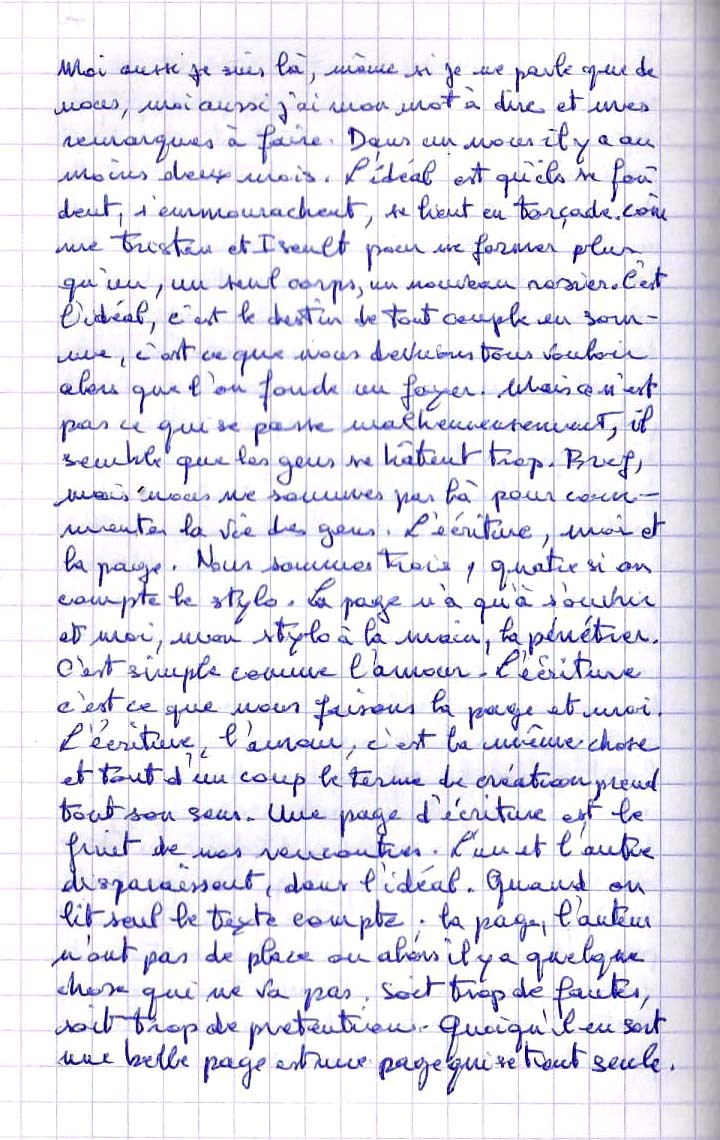 Moi aussi je suis là, même si je ne parle que de
nous, moi aussi j'ai mon mot à dire et mes
remarques à faire. Dans un nous il y a au
moins deux mois. L'idéal est qu'ils se fon
dent, s'emmourachent, se lient en torçade. Com
me Tristan et Iseult pour ne former plus
qu'un, un seul corps, un nouveau rosier. C'est
l'idéal, c'est le destin de tout couple en som-
me, c'est ce que nous devrions tous vouloir
alors que l'on fonde un foyer. Mais ce n'est
pas ce qui se passe malheureusement, il
semble que les gens se hâtent trop. Bref,
mais nous ne sommes pas là pour com-
menter la vie des gens. L'écriture, moi et
la page. Nous sommes trois, quatre si on
compte le stylo. La page n'a qu'à s'ouvrir
et moi, mon stylo à la main, la pénétrer.
C'est simple comme l'amour. L'écriture
c'est ce que nous faisons la page et moi.
L'écriture, l'amour, c'est la même chose
et tout d'un coup le terme de création prend
tout son sens. Une page d'écriture est le
fruit de nos rencontres. L'un et l'autre
disparaissent, dans l'idéal. Quand on
lit seul le texte compte. la page, l'auteur
n'ont pas de place ou alors il y a quelque
chose qui ne va pas, soit trop de fautes,
soit trop de pretention. Quoiqu'il en soit
une belle page est une page qui se tient seule.